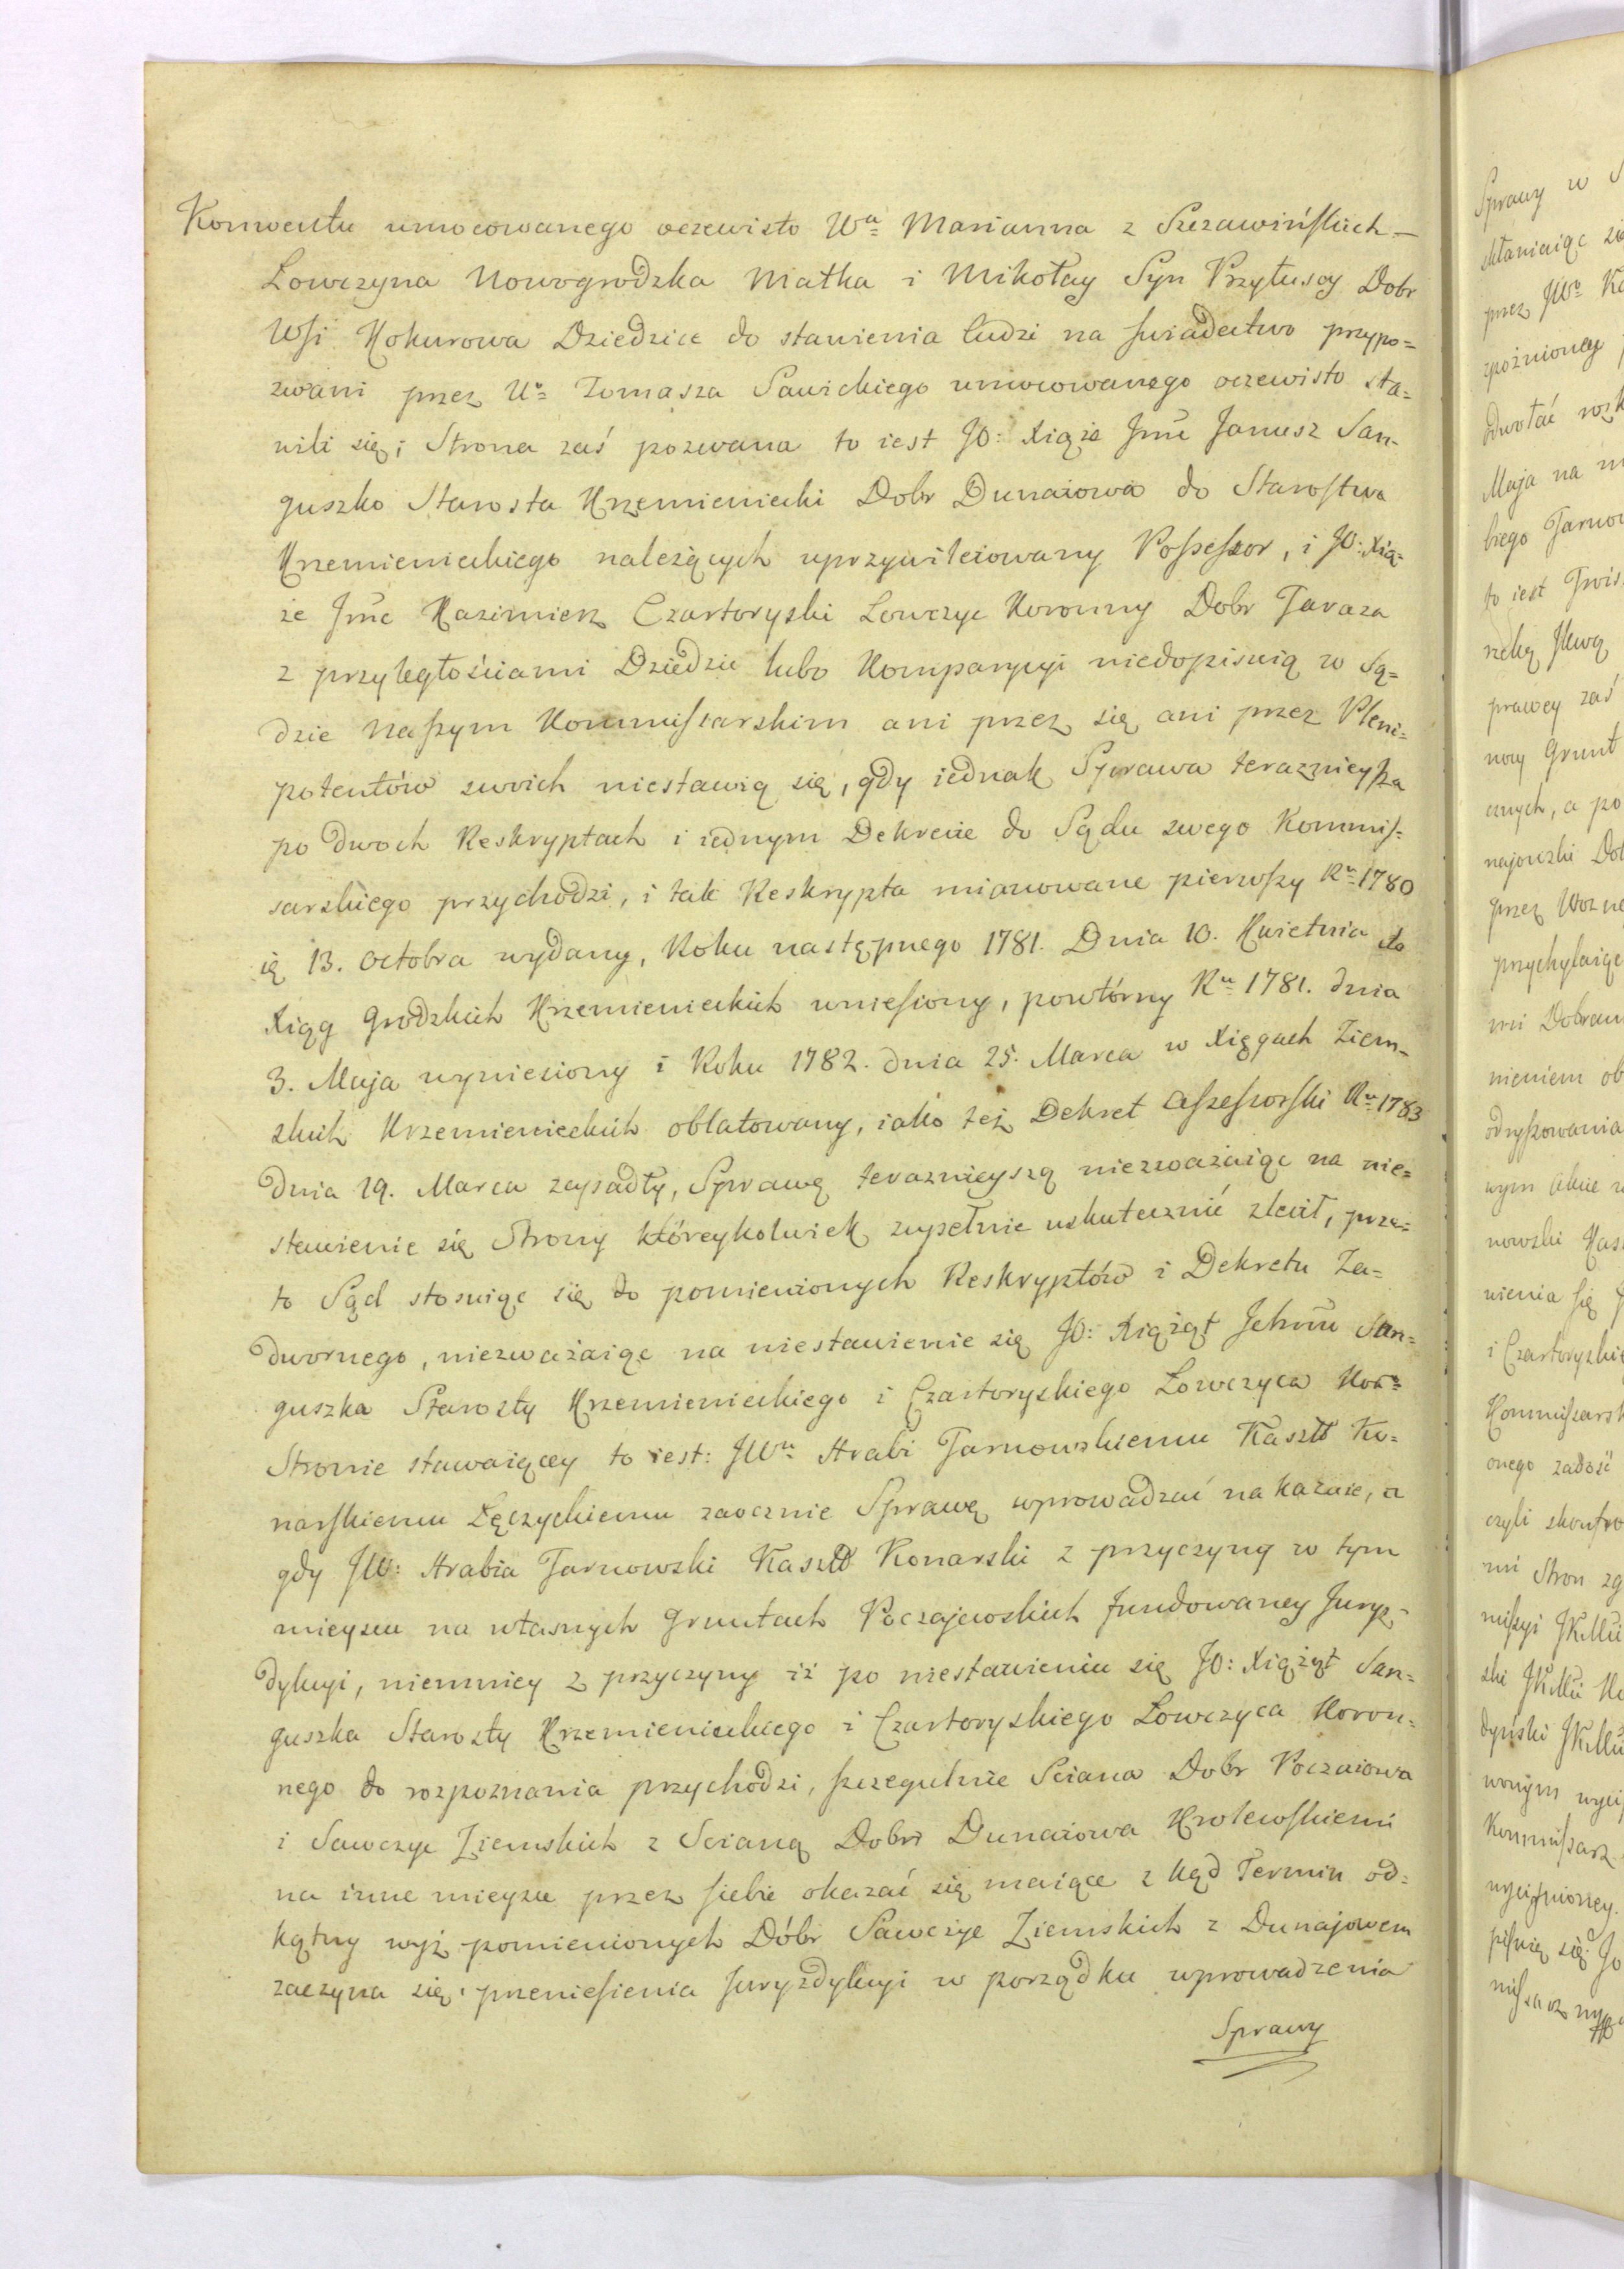 Konwentu umocowanego oczewisto Wa= Marianna z Szczawińskich —
Łowczyna Nowogrodzka Matka i Mikołay Syn Przyłuscy Dobr
Wsi Kokurowa Dziedzice do stawienia ludzi na świadectwo przypo=
zwani przez Uo= Tomasza Sawickiego umocowanego oczewisto sta=
wili się; Strona zaś pozwana to iest JO: Xiąże Jmć Janusz San-
guszko Starosta Krzemieniecki Dobr Dunaiowa do Starostwa
Krzemienieckiego należących uprzywileiowany Possessor, i JO: Xią=
że Jmć Kazimierz Czartoryski Łowczyc Koronny Dobr Taraża
z przyległościami Dziedzic lubo Komparycyi niedopisuią w Są=
dzie Naszym Kommissarskim ani przez się ani przez Pleni=
potentów swoich niestawią się, gdy iednak Sprawa teraznieysza
po dwoch Reskryptach i iednym Dekrecie do Sądu swego Kommis=
sarskiego przychodzi, i tak Reskrypta mianowane pierwszy Ru= 1780
ię 13. Octobra wydany, Roku następnego 1781. Dnia 10. Kwietnia do
Xiąg Grodzkich Krzemienieckich wniesiony, powtórny Ru= 1781. dnia
3. Maja wyniesiony i Roku 1782. dnia 25. Marca w Xięgach Ziem-
skich Krzemienieckich oblatowany, iako też Dekret Assessorski Ru= 1783
dnia 19. Marca zapadły, Sprawę teraznieyszą niezważaiąc na nie=
stawienie się Strony któreykolwiek zupełnie uskutecznić zlecił, prze=
to Sąd stosuiąc się do pomienionych Reskryptów i Dekretu Za=
dwornego, niezważaiąc na niestawienie się JO: Xiążąt Jchmć San=
guszka Starosty Krzemienieckiego i Czartoryskiego Łowczyca Koro=
Stronie stawaiącey to iest: JWu= Hrabi Tarnowskiemu Kasztt Ko=
narskiemu Łęczyckiemu zaocznie Sprawę wprowadzać nakazuie, a
gdy JW: Hrabia Tarnowski Kasztt Konarski z przyczyny w tym
mieyscu na własnych Gruntach Poczajewskich fundowaney Jurys=
dykcyi, niemniey z przyczyny iż po niestawieniu się JO: Xiążąt San=
guszka Starosty Krzemienieckiego i Czartoryskiego Łowczyca Koron=
nego do rozpoznania przychodzi, szczegulnie Sciana Dobr Poczaiowa
i Sawczyc Ziemskich z Scianą Dobr Dunaiowa Krolewskiemi
na inne mieysce przez siebie okazać się maiące z kąd Termin od=
kątny wyż pomienionych Dóbr Sawczyc Ziemskich z Dunajowem
zaczyna się, przeniesienia Juryzdykcyi w porządku wprowadzenia
Sprawy
Sprawy w
skłaniaiąc
przez JWo=
Odwołać
Maja na
to iest
rzekę Jkwą
prawey zaś
Grunt
, a po
przez Woz
przychylaiąc
nieniem
nowski
nienia się
i Czartoryski
onego zadość
czyli
Stron
Kommissarz